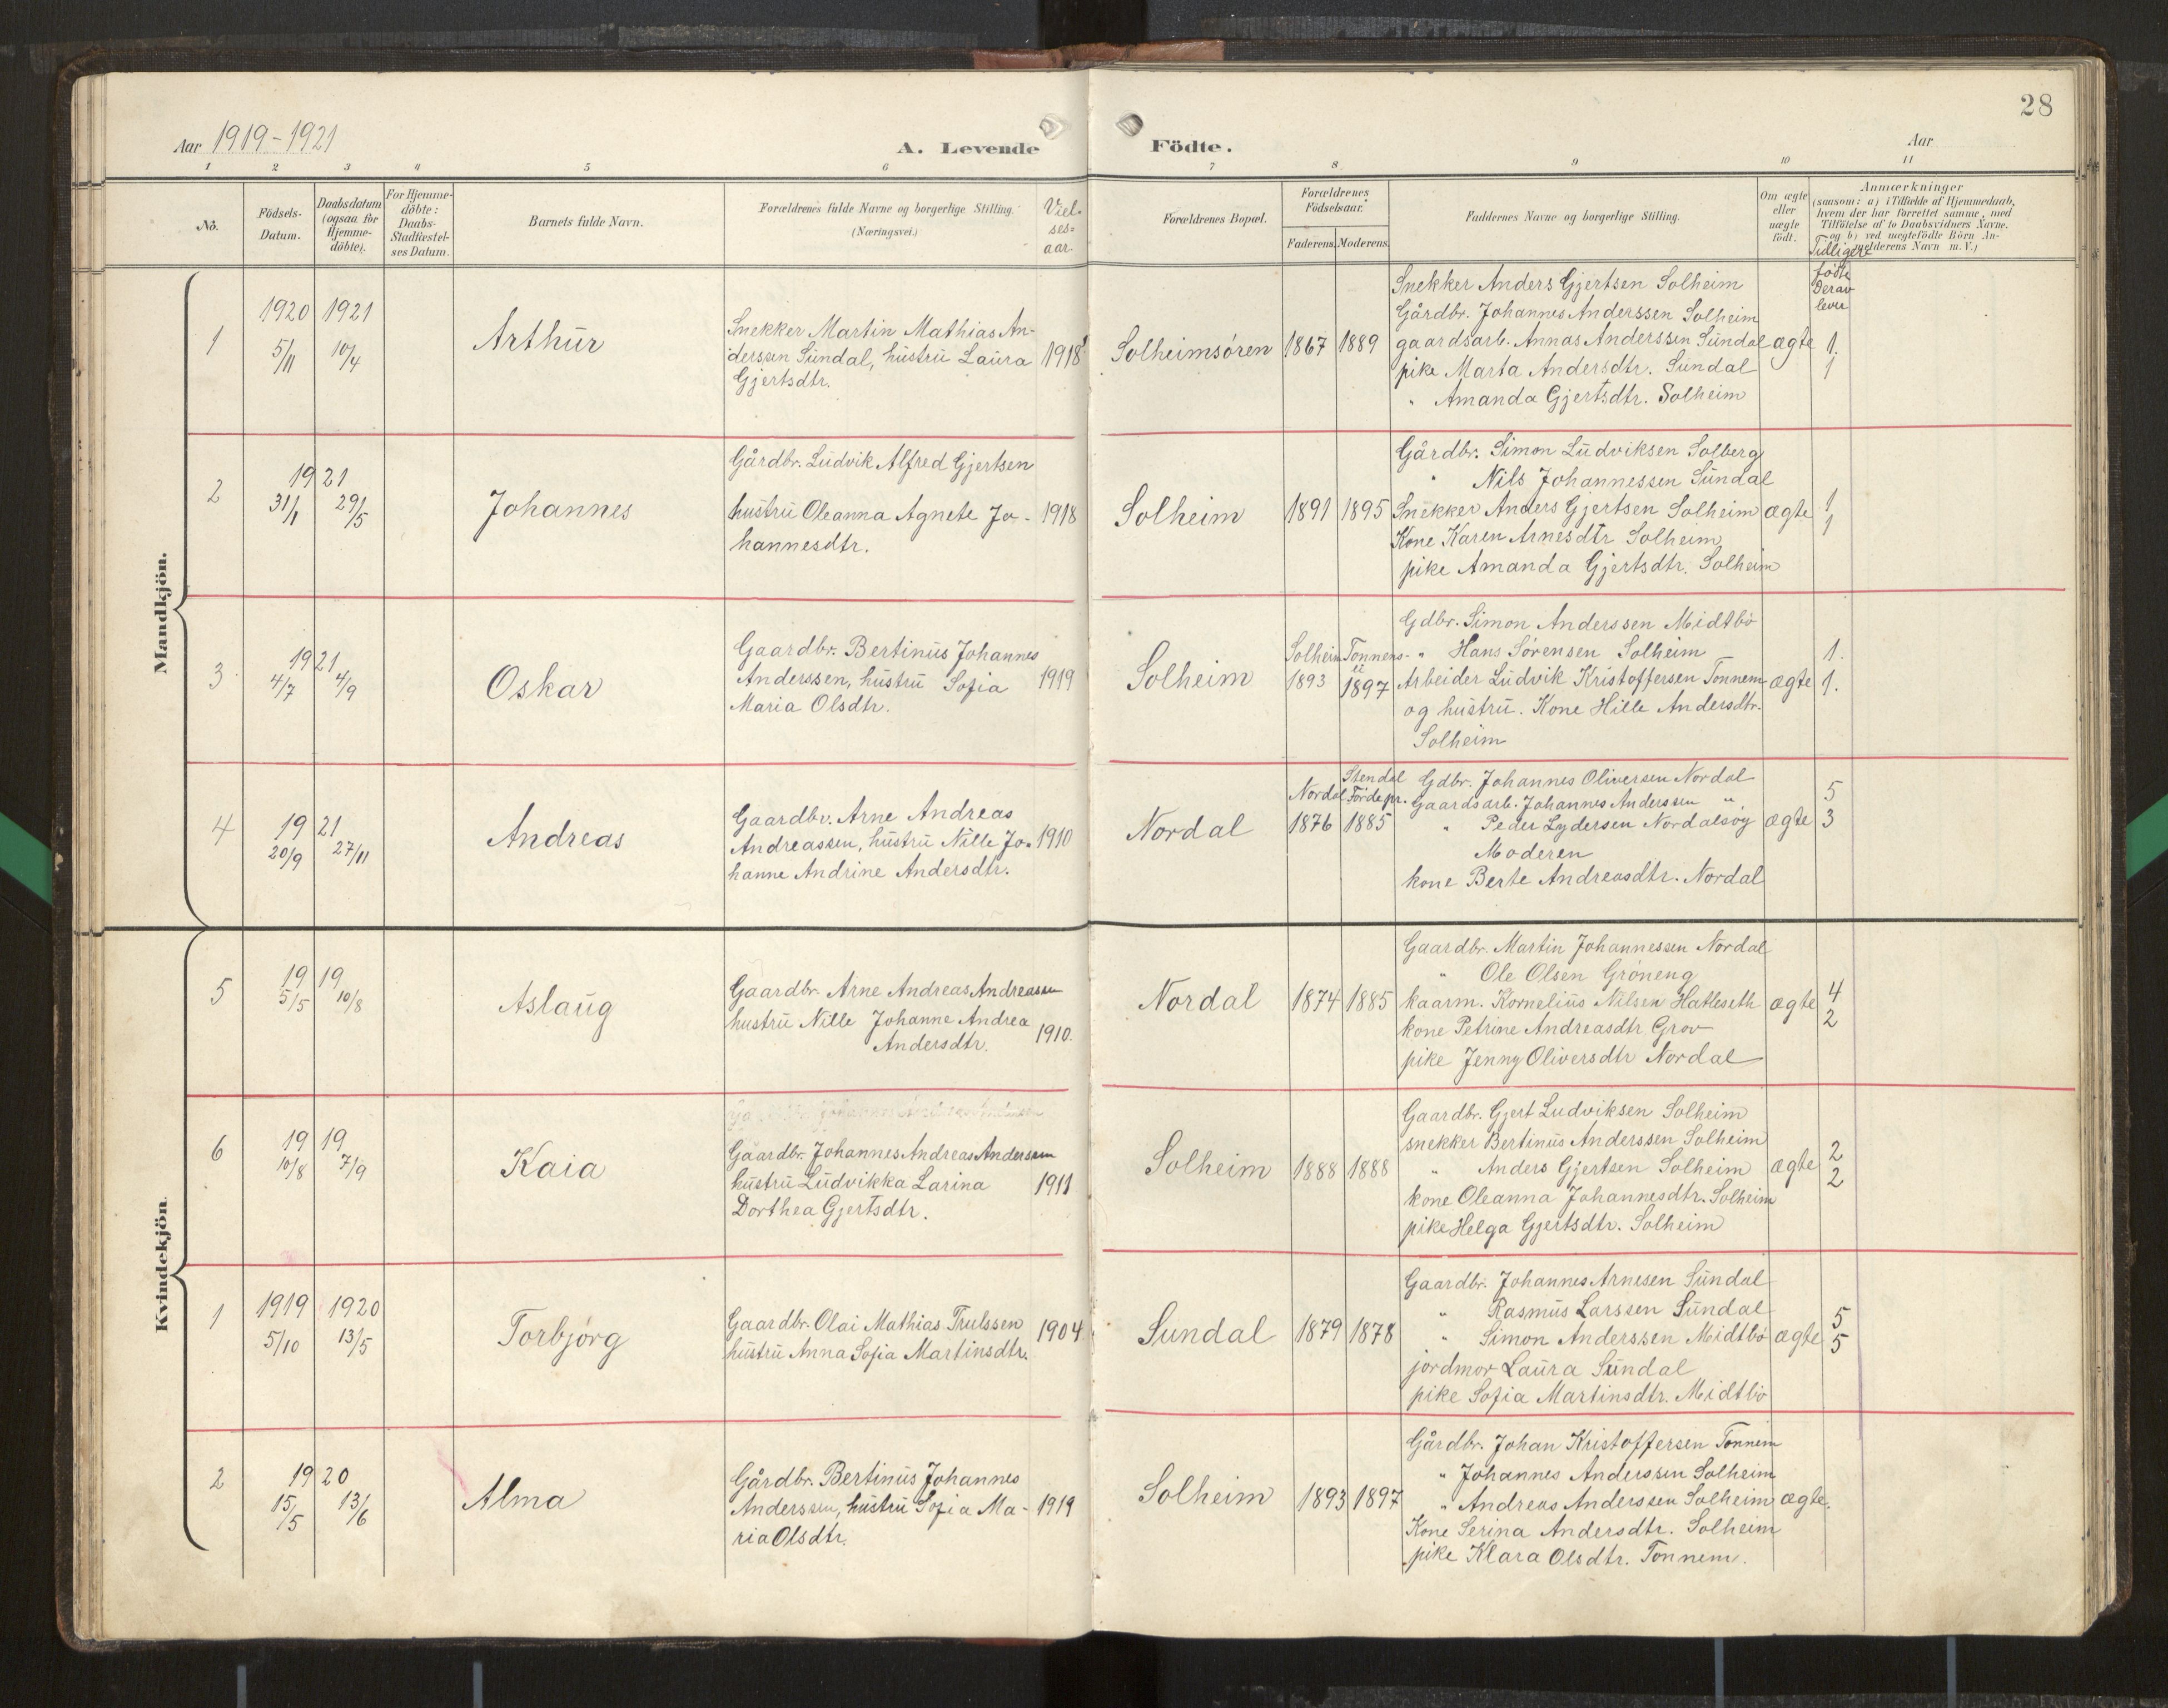 28
Aar 1919-1921
A. Levende Födte.
Aar
1 2 3 4 5 6 7 8 9 10 11
No.
Födsels-
Datum.
Daabsdatum
(ogsaa for
Hjemme-
döbte).
For Hjemme-
döbte:
Daabs-
Stadfæstel-
ses Datum.
Barnets fulde Navn.
Forældrenes fulde Navne og borgerlige Stilling.
(Næringsvei.)
Viel-
ses=
aar.
Forældrenes Bopæl.
Forældrenes
Födselsaar.
Faderens. Moderens.
Faddernes Navne og borgerlige Stilling.
Om ægte
eller
uægte
födt.
Anmærkninger
(saasom: a) i Tilfælde af Hjemmedaab,
hvem der har forrettet samme, med
Tilföielse af to Daabsvidners Navne.
og b) ved uægtefödte Börn An-
melderens Navn m. V.)
Tidligere
fødte
Derav
leve
Mandkjön.
1
1920 1921
5/11 10/4
Arthur
Snekker Martin Mathias An-
derssen Sundal, hustru Laura
Gjertsdtr.
1918
Solheimsøren
1867 1889
Snekker Anders Gjertsen Solheim
Gårdbr. Johannes Anderssen Solheim
gaardsarb. Annas Anderssen Sundal
pike Marta Andersdtr. Sundal
" Amanda Gjertsdtr. Solheim
ægte
1.
1
2
19 21
31/1 29/5
Johannes
Gårdbr. Ludvik Alfred Gjertsen
hustru Oleanna Agnete Jo-
hannesdtr.
1918
Solheim
1891 1895
Gårdbr. Simon Ludviksen Solberg
" Nils Johannessen Sundal
Snekker Anders Gjertsen Solheim
Kone Karen Arnesdtr Solheim
pike Amanda Gjertsdtr. Solheim
ægte
1
1
3
19 21
4/7 4/9
Oskar
Gaardbr. Bertinus Johannes
Anderssen, hustru Sofia
Maria Olsdtr.
1919
Solheim
Solheim Tonnems-
1893 1897
Gdbr. Simon Anderssen Midtbø
" Hans Sørensen Solheim
Arbeider Ludvik Kristoffersen Tonnem
og hustru. Kone Hille Andersdtr.
Solheim
ægte
1.
1.
4
19 21
20/9 27/11
Andreas
Gaardbr. Arne Andreas
Andreassen, hustru Nille Jo-
hanne Andrine Andersdtr.
1910
Nordal
Stendal
Nordal Førde pr.
1876 1885
Gdbr. Johannes Oliversen Nordal
Gaardsarb. Johannes Anderssen "
" Peder Lydersen Nordalsøy
Moderen
kone Berte Andreasdtr. Nordal
ægte
5
3
Kvindekjön.
5
19 19
5/5 10/8
Aslaug
Gaardbr. Arne Andreas Andreassen
hustru Nille Johanne Andrea
Andersdtr.
1910.
Nordal
1874 1885
Gaardbr. Martin Johannessen Nordal
" Ole Olsen Grøneng
kaarm. Kornelius Nilsen Hatleseth
kone Petrine Andreasdtr Grov
pike Jenny Oliversdtr Nordal
ægte
4
2
6
19 19
10/8 7/9
Kaia
Gaardbr. Johannes Andreas Anderssen
hustru Ludvikka Larina
Dorthea Gjertsdtr.
1911
Solheim
1888 1888
Gaardbr. Gjert Ludviksen Solheim
snekker Bertinus Anderssen Solheim
" Anders Gjertsen Solheim
kone Oleanna Johannesdtr. Solheim
pike Helga Gjertsdtr. Solheim
ægte
2
2
1
1919 1920
5/10 13/5
Torbjørg
Gaardbr. Olai Mathias Trulssen
hustru Anna Sofia Martinsdtr.
1904
Sundal
1879 1878
Gaardbr. Johannes Arnesen Sundal
" Rasmus Larssen Sundal
" Simon Anderssen Midtbø
jordmor Laura Sundal
pike Sofia Martinsdtr. Midtbø
ægte
5
5
2
19 20
15/5 13/6
Alma
Gårdbr. Bertinus Johannes
Anderssen, hustru Sofia Ma-
ria Olsdtr.
1919
Solheim
1893 1897
Gårdbr. Johan Kristoffersen Tonnem
" Johannes Anderssen Solheim
" Andreas Anderssen Solheim
Kone Serina Andersdtr. Solheim
pike Klara Olsdtr. Tonnem.
ægte.